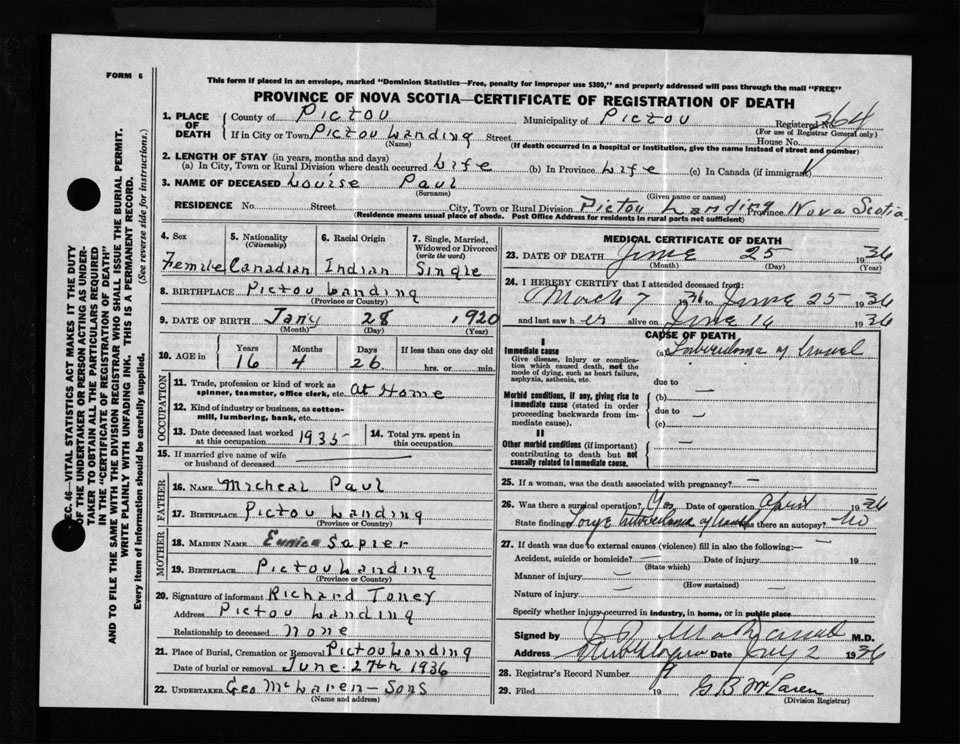 FORM 6
This form if placed in an envelope, marked "Dominion Statistics—Free, penalty for improper use $300," and properly addressed will pass through the mail "FREE"
PROVINCE OF NOVA SCOTIA—CERTIFICATE OF REGISTRATION OF DEATH
SEC. 46—VITAL STATISTICS ACT MAKES IT THE DUTY
OF THE UNDERTAKER OR PERSON ACTING AS UNDER-
TAKER TO OBTAIN ALL THE PARTICULARS REQUIRED
IN THE "CERTIFICATE OF REGISTRATION OF DEATH"
AND TO FILE THE SAME WITH THE DIVISION REGISTRAR WHO SHALL ISSUE THE BURIAL PERMIT.
WRITE PLAINLY WITH UNFADING INK. THIS IS A PERMANENT RECORD.
Every item of information should be carefully supplied. (See reverse side for instructions.)
1. PLACE OF DEATH County of Pictou Municipality of Pictou Registered No. 364
(For use of Registrar General only)
If in City or Town Pictou Landing Street House No.
(Name) (If death occurred in a hospital or institution, give the name instead of street and number)
2. LENGTH OF STAY (in years, months and days)
(a) In City, Town or Rural Division where death occurred Life (b) In Province Life (c) In Canada (if immigrant)
3. NAME OF DECEASED Louise Paul
(Surname) (Given name or names)
RESIDENCE No. Street City, Town or Rural Division Pictou Landing Province Nova Scotia
(Residence means usual place of abode. Post Office Address for residents in rural parts not sufficient)
4. Sex 5. Nationality (Citizenship) 6. Racial Origin 7. Single, Married, Widowed or Divorced (write the word)
Femile Canadian Indian Single
8. BIRTHPLACE Pictou Landing
(Province or Country)
9. DATE OF BIRTH Jany 28 1920
(Month) (Day) (Year)
10. AGE in Years Months Days If less than one day old
16 4 26 hrs. or min.
OCCUPATION
11. Trade, profession or kind of work as spinner, teamster, office clerk, etc. at Home
12. Kind of industry or business, as cotton-mill, lumbering, bank, etc.
13. Date deceased last worked at this occupation 1935 14. Total yrs. spent in this occupation
15. If married give name of wife or husband of deceased
FATHER
16. NAME Micheal Paul
17. BIRTHPLACE Pictou Landing
(Province or Country)
MOTHER
18. MAIDEN NAME Eunice Sapier
19. BIRTHPLACE Pictou Landing
(Province or Country)
20. Signature of informant Richard Toney
Address Pictou Landing
Relationship to deceased none
21. Place of Burial, Cremation or Removal Pictou Landing
Date of burial or removal June 27th 1936
22. UNDERTAKER Geo McLaren — Sons
(Name and address)
MEDICAL CERTIFICATE OF DEATH
23. DATE OF DEATH June 25 1936
(Month) (Day) (Year)
24. I HEREBY CERTIFY that I attended deceased from:
March 7 1936 to June 25 1936
and last saw her alive on June 16 1936
CAUSE OF DEATH
I
Immediate cause
Give disease, injury or complication which caused death, not the mode of dying, such as heart failure, asphyxia, asthenia, etc.
(a) Tuberculoma of bowel
due to —
Morbid conditions, if any, giving rise to immediate cause (stated in order proceeding backwards from immediate cause).
(b)
due to —
(c)
II
Other morbid conditions (if important) contributing to death but not causally related to immediate cause. —
25. If a woman, was the death associated with pregnancy? —
26. Was there a surgical operation? Yes Date of operation April 1936
State findings Large tuberculoma of bowel Was there an autopsy? no
27. If death was due to external causes (violence) fill in also the following:— —
Accident, suicide or homicide? — Date of injury 19
(State which)
Manner of injury —
(How sustained)
Nature of injury —
Specify whether injury occurred in industry, in home, or in public place
Signed by M.D.
Address Date July 2 1936
28. Registrar's Record Number 9
29. Filed 19 G B McLaren
(Division Registrar)